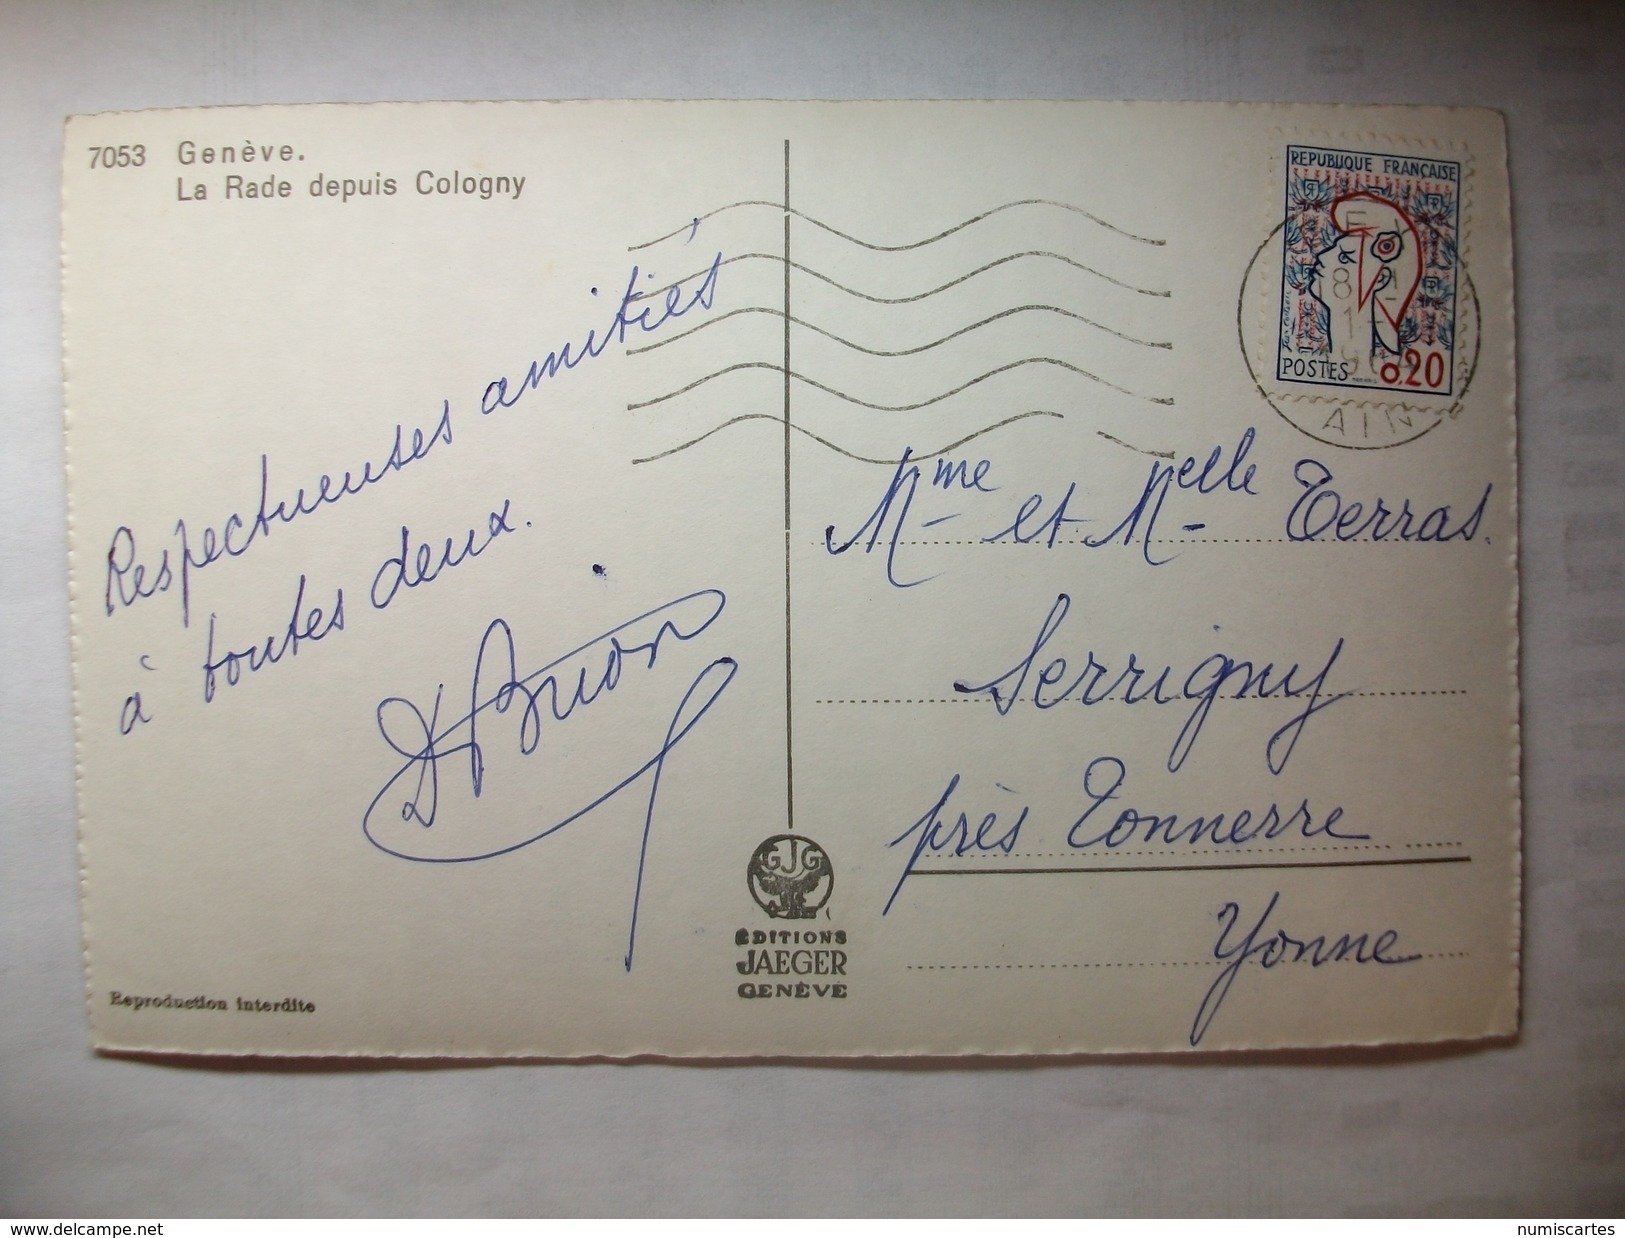 7053 Genève.
La Rade depuis Cologny
Respectueuses amitiés
à toutes deux.
Brion
REPUBLIQUE FRANÇAISE
POSTES 0,20
AIN
Mme et Melle Terras.
Serrigny
près Tonnerre
Yonne
GJG
ÉDITIONS
JAEGER
GENÈVE
Reproduction interdite
www.delcampe.net
numiscartes